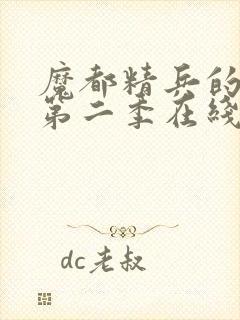 魔都精兵的
第二季在线
dc老叔